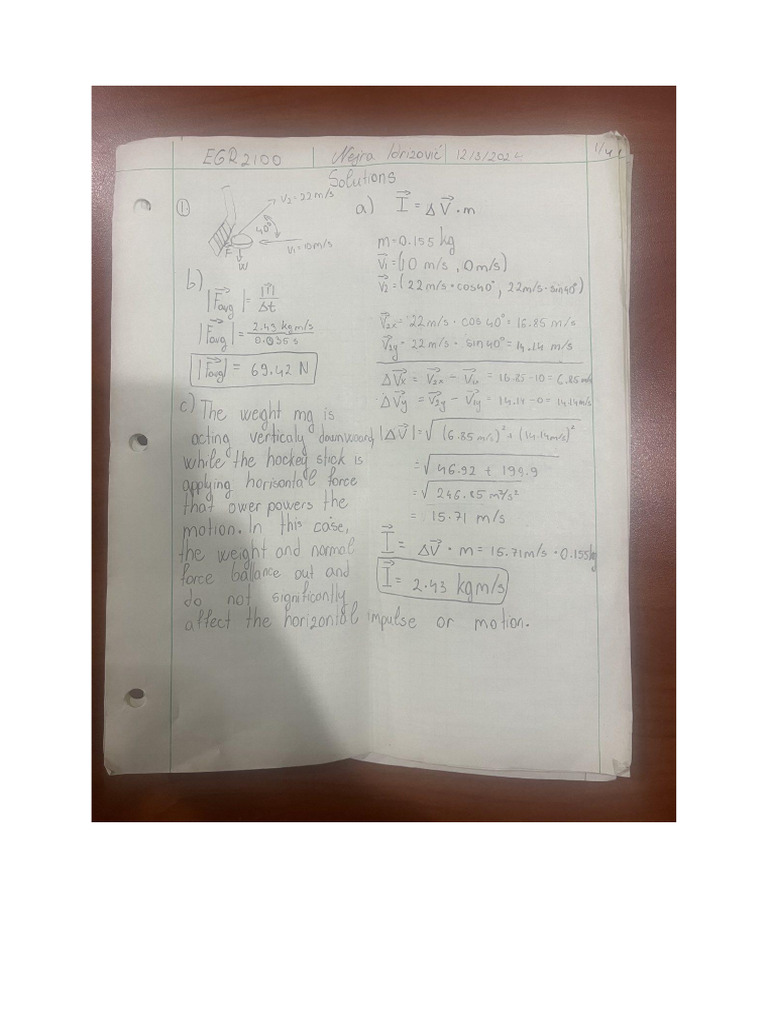 EGR2100 | Nejra Idrizović | 12/3/202
Solutions
1.
V₂ = 22 m/s
40°
V₁ = 10 m/s
F
W
a) I⃗ = ΔV⃗ · m
m = 0.155 kg
V⃗₁ = (10 m/s, 0 m/s)
V⃗₂ = (22 m/s · cos40°, 22 m/s · sin40°)
V⃗₂ₓ = 22 m/s · cos 40° = 16.85 m/s
V⃗₂y = 22 m/s · sin 40° = 14.14 m/s
ΔV⃗x = V⃗₂ₓ - V⃗₁ₓ = 16.85 - 10 = 6.85 m/s
ΔV⃗y = V⃗₂y - V⃗₁y = 14.14 - 0 = 14.14 m/s
|ΔV⃗| = √(6.85 m/s)² + (14.14 m/s)²
= √46.92 + 199.9
= √246.85 m²/s²
= 15.71 m/s
I⃗ = ΔV⃗ · m = 15.71 m/s · 0.155 kg
I⃗ = 2.43 kg m/s
b)
|F⃗avg| = |I⃗| / Δt
|F⃗avg| = 2.43 kg m/s / 0.035 s
|F⃗avg| = 69.42 N
c) The weght mg is
acting verticaly downwoard,
while the hockey stick is
applying horisontal force
that ower powers the
motion. In this case,
the weight and normal
force ballance out and
do not significantly
affect the horizontal impulse or motion.